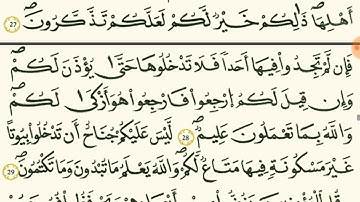 أَهْلِهَا ذَٰلِكُمْ خَيْرٌ لَّكُمْ لَعَلَّكُمْ تَذَكَّرُونَ 27
فَإِن لَّمْ تَجِدُوا فِيهَا أَحَدًا فَلَا تَدْخُلُوهَا حَتَّىٰ يُؤْذَنَ لَكُمْ
وَإِن قِيلَ لَكُمُ ارْجِعُوا فَارْجِعُوا هُوَ أَزْكَىٰ لَكُمْ
وَاللَّهُ بِمَا تَعْمَلُونَ عَلِيمٌ 28 لَّيْسَ عَلَيْكُمْ جُنَاحٌ أَن تَدْخُلُوا بُيُوتًا
غَيْرَ مَسْكُونَةٍ فِيهَا مَتَاعٌ لَّكُمْ وَاللَّهُ يَعْلَمُ مَا تُبْدُونَ وَمَا تَكْتُمُونَ 29